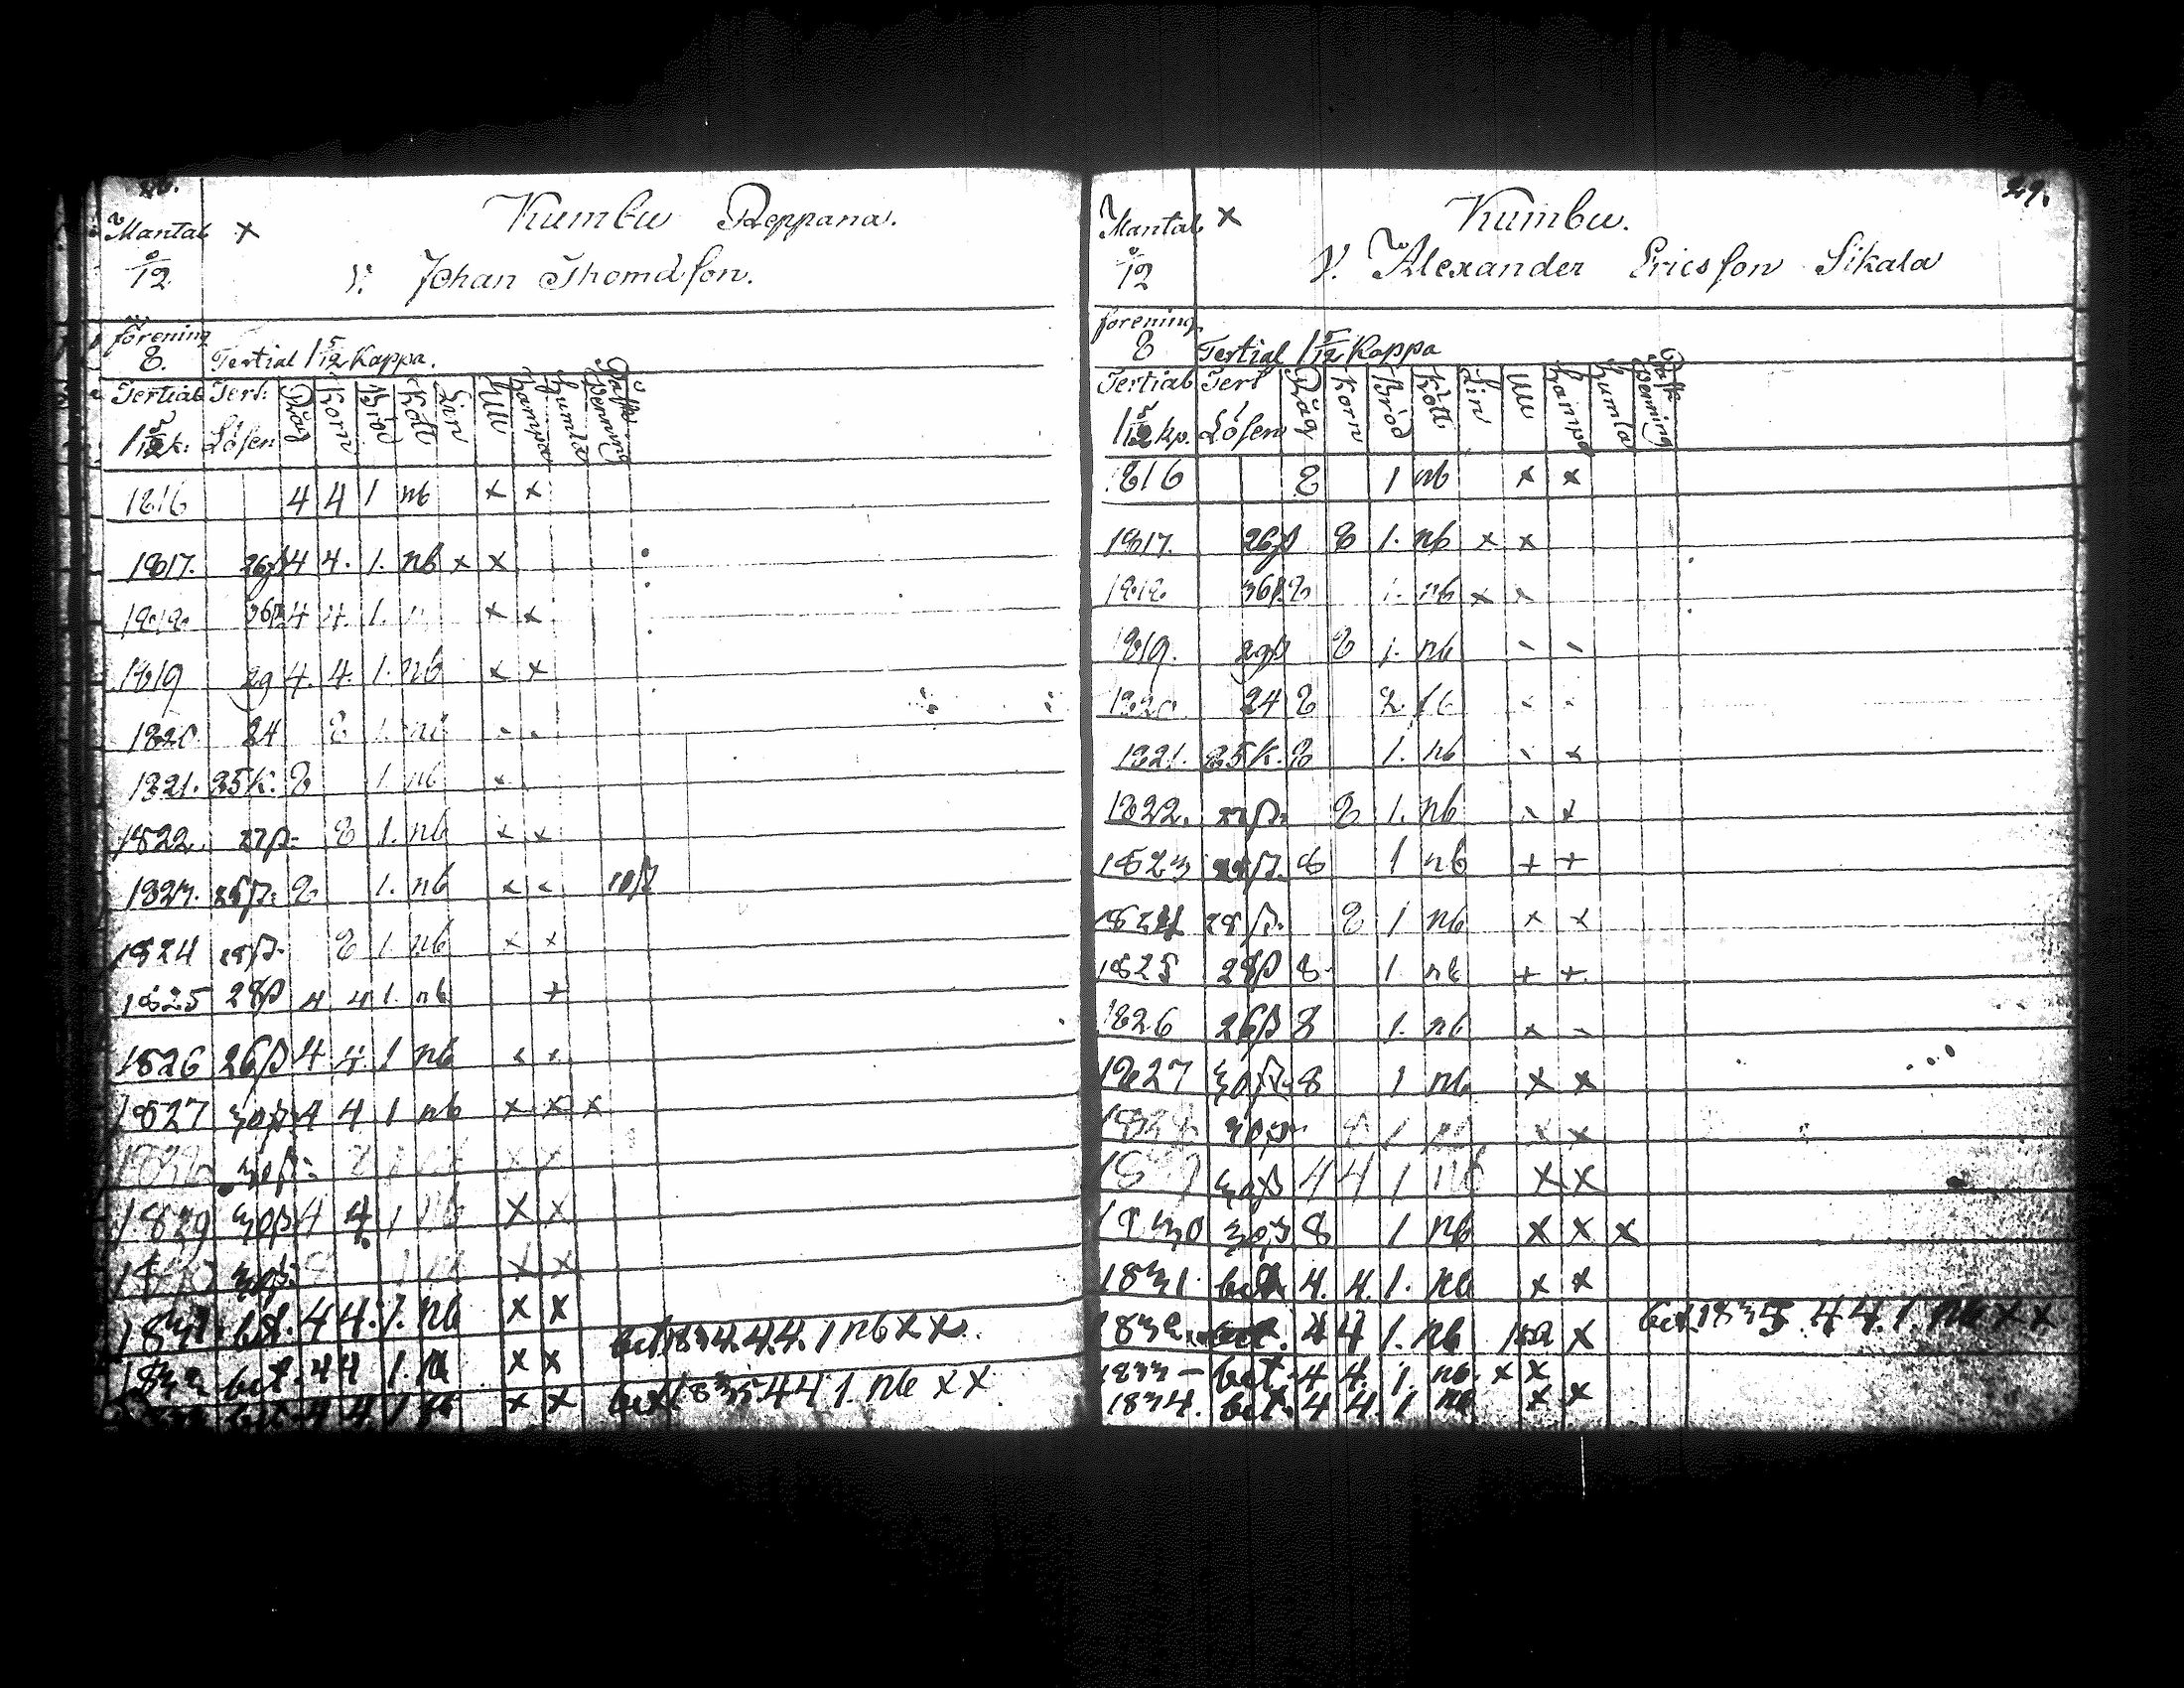 Mantal x Kumbu Reppana.
12 V. Johan Thomdson.
förening
8. Tertial 1 5/12 Kappa.
Tertial Tert: Råg Korn Bröd Kött Lin Ull Hampa Humla Påsk Penning
1 5/12 k: Lösen
1816 4 4 1 nb x x
1817. 26β 4 4. 1. nb x x
1818 36β 4 4. 1. x x
1819 29 4. 4. 1. nb x x
1820 24 8 1. nb
1821. 25 k. 8 1. nb x
1822. 27β. 8 1. nb x x
1823. 8 1. nb x x
1824 28β. 8 1. nb x x
1825 28β 4 4 1. nb +
1826 26β 4 4. 1 nb x x
1827 30β 4 4 1. nb x x x
30β. 8 x x
1829 30β 4 4. 1 nb x x
30β 8 1 nb x x
1831. bet. 4 4. 1. nb x x
1832 bet. 4 4 1. nb x x
bet. 4 4 1 nb x x
bet 1834. 4. 4. 1 nb x x.
bet 1835 4 4 1. nb x x
29.
Mantal x Kumbu.
12 V. Alexander Ericsson Sikala
förening
8 Tertial 1 5/12 Kappa
Tertial Tert Råg Korn Bröd Kött Lin Ull Hampa Humla Påsk Penning
1 5/12 kp. Lösen
1816 8 1 nb x x
1817. 26β 8 1. nb x x
1818 36β. 8 1. nb x x
1819. 29β 8 1. nb
1820. 24 8
1821. 25 k. 8 1. nb x x
1822. 27β. 8 1. nb x x
1823 8 1 nb + +
1824 28β. 8 1 nb x x
1825 28β 8 1 nb + +
1826 26β 8 1. nb x
1827 30β. 8 1 nb x x
1828 30β 8 1 nb x x
30β 4 4 1 nb x x
1830 30β 8 1 nb x x x
1831. bet. 4. 4. 1. nb x x
1832 bet. 4 4 1. nb x
1833 - bet. 4 4. 1. nb. x x
1834. bet. 4 4. 1 nb x x
bet. 1835. 4 4. 1. nb x x